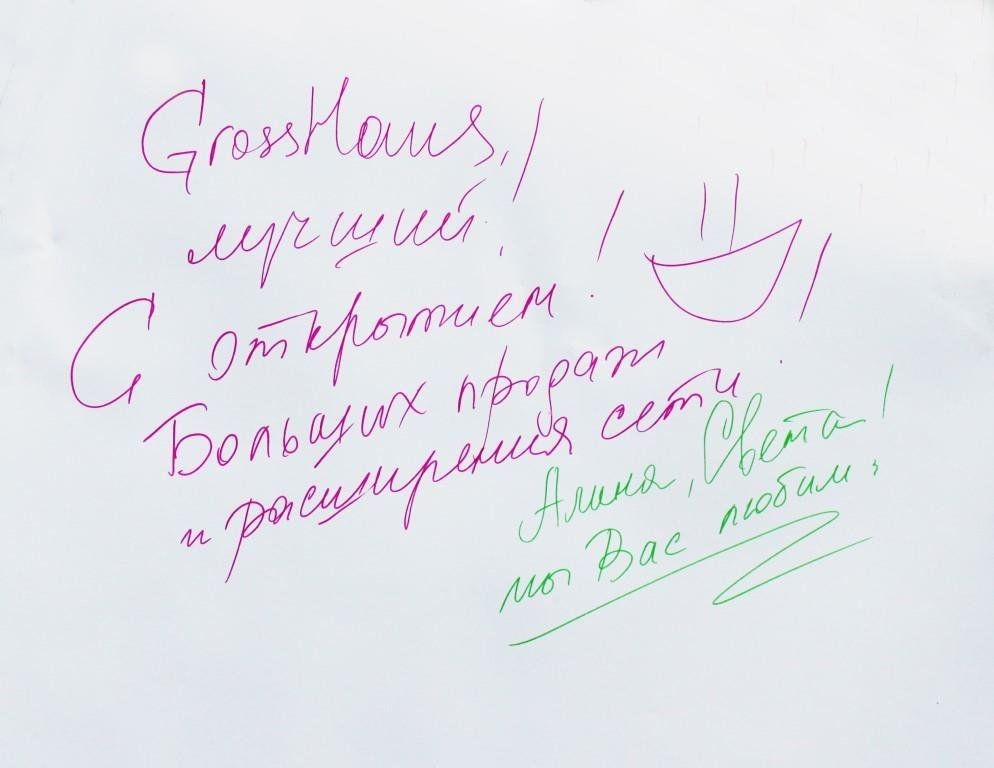 GrossHaus,!
лучший!
С открытием!
Больших продаж
и расширения сети.
Алина, Света!
мы Вас любим!